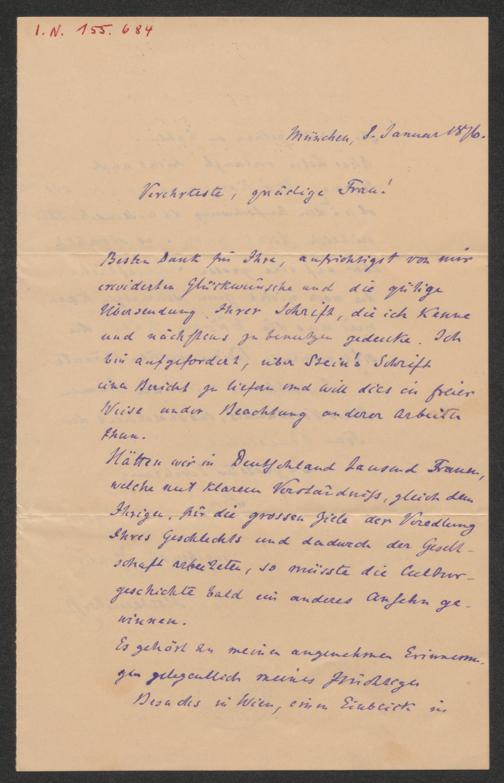 I.N. 155.684
München, 2. Januar 1876.
Verehrteste, gnädige Frau!
Besten Dank für Ihre, aufrichtigst von mir
erwiderten Glückwünsche und die gütige
Übersendung Ihrer Schrift, die ich kenne
und nächstens zu benutzen gedenke. Ich
bin aufgefordert, über Stein's Schrift
einen Bericht zu liefern und will dies in freier
Weise unter Beachtung anderer Arbeiten
thun.
Hätten wir in Deutschland tausend Frauen,
welche mit klarem Verständniß, gleich dem
Ihrigen, für die grossen Ziele der Veredlung
Ihres Geschlechts und dadurch der Gesell-
schaft arbeiteten, so müsste die Cultur-
geschichte bald ein anderes Ansehn ge-
winnen.
Es gehört zu meinen angenehmen Erinnerun-
gen gelegentlich meines
Besuches in Wien, einen Einblick in